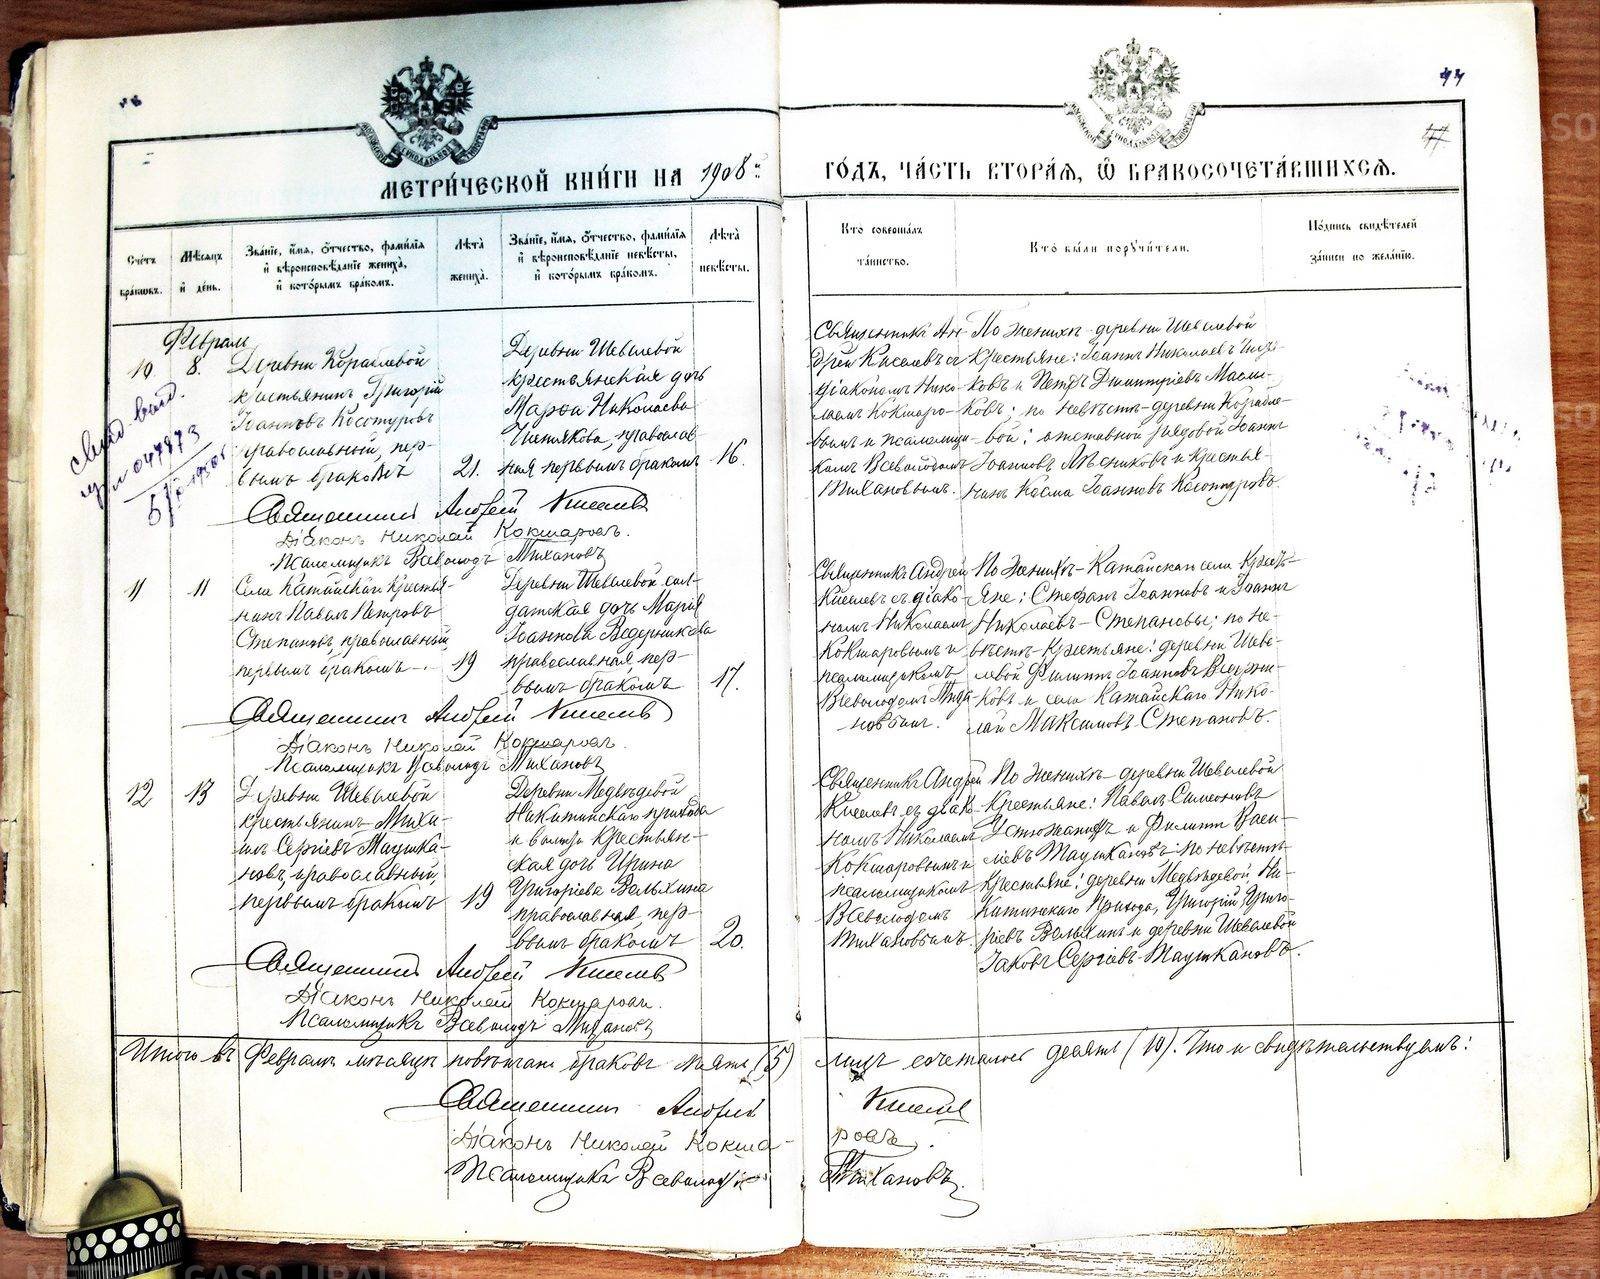 МЕТРИ́ЧЕСКОЙ КНИ́ГИ НА 1908 й
ГО́ДЪ, ЧА́СТЬ ВТОРА́Я, Ѿ БРАКОСОЧЕТА́ВШИХСЯ.
Сче́тъ бра́ковъ.
Мѣ́сяцъ и́ день.
Зва́нїе, и́мя, ѻ҆́тчество, фами́лїя и҆ вѣроисповѣ́данїе жениха̀, и҆ кото́рымъ бра́комъ.
Лѣ́та жениха̀.
Зва́нїе, и́мя, ѻ҆́тчество, фами́лїя и҆ вѣроисповѣ́данїе невѣ́сты, и҆ кото́рымъ бра́комъ.
Лѣ́та невѣ́сты.
Кто̀ соверша́лъ та́инство.
Кто̀ бы́ли поручи́тели.
По́дпись свидѣ́телей за́писи по жела́нїю.
Февраль
10.
8.
Деревни Кораблевой
крестьянинъ Григорій
Іоанновъ Косотуровъ
православный, пер-
вымъ бракомъ
21.
Деревни Шевелевой
крестьянская дочь
Марѳа Николаева
православ-
ная первымъ бракомъ
16.
Священникъ Ан-
дрей Киселевъ съ
діакономъ Нико-
лаемъ Кокшаро-
вымъ и псаломщи-
комъ Всеволодомъ
Тихановымъ.
По женихѣ деревни Шевелевой
крестьяне: Іоаннъ Николаевъ
ковъ и Петръ Димитріевъ Масли-
ковъ; по невѣстѣ деревни Корабле-
вой: отставной рядовой Іоаннъ
Іоанновъ Мѣсниковъ и крестья-
нинъ Косма Іоанновъ Косотуровъ.
Священникъ Андрей Киселевъ
Діаконъ Николай Кокшаровъ.
Псаломщикъ Всеволодъ Тихановъ
11
11
Села Катайскаго крестья-
нинъ Павелъ Петровъ
Степановъ, православный,
первымъ бракомъ
19
Деревни Шевелевой сол-
датская дочь Марія
Іоаннова Ведерникова
православная, пер-
вымъ бракомъ
17.
Священникъ Андрей
Киселевъ съ діако-
номъ Николаемъ
Кокшаровымъ и
псаломщикомъ
Всеволодомъ Тиха
новымъ.
По женихѣ Катайскаго села кресть-
яне: Стефанъ Іоанновъ и Іоаннъ
Николаевъ Степановы; по не-
вѣстѣ крестьяне: деревни Шеве-
левой Филиппъ Іоанновъ Ведерни-
ковъ и села Катайскаго Нико-
лай Максимовъ Степановъ.
Священникъ Андрей Киселевъ
Діаконъ Николай Кокшаровъ.
Псаломщикъ Всеволодъ Тихановъ
12
13
Деревни Шевелевой
крестьянинъ Миха-
илъ Сергіевъ Таушка-
новъ, православный,
первымъ бракомъ
19
Деревни Медвѣдевой
Никитинскаго прихода
и волости крестьян-
ская дочь Ирина
Григоріева Волыхина
православная, пер-
вымъ бракомъ
20.
Священникъ Андрей
Киселевъ съ діако-
номъ Николаемъ
Кокшаровымъ и
псаломщикомъ
Всеволодомъ
Тихановымъ.
По женихѣ деревни Шевелевой
крестьяне: Павелъ Симеоновъ
Устюжанинъ и Филиппъ Васи-
ліевъ Таушкановъ по невѣстѣ
крестьяне: деревни Медвѣдевой, Ни-
китинскаго прихода, Григорій Григо-
ріевъ Волыхинъ и деревни Шевелевой
Іаковъ Сергіевъ Таушкановъ.
Священникъ Андрей Киселевъ
Діаконъ Николай Кокшаровъ.
Псаломщикъ Всеволодъ Тихановъ
Итого въ Февралѣ мѣсяцѣ повѣнчано браковъ пять (5) лицъ сочеталось десять (10). Что и свидѣтельствуемъ:
Священникъ Андрей Киселевъ
Діаконъ Николай Кокшаровъ.
Псаломщикъ Всеволодъ Тихановъ.